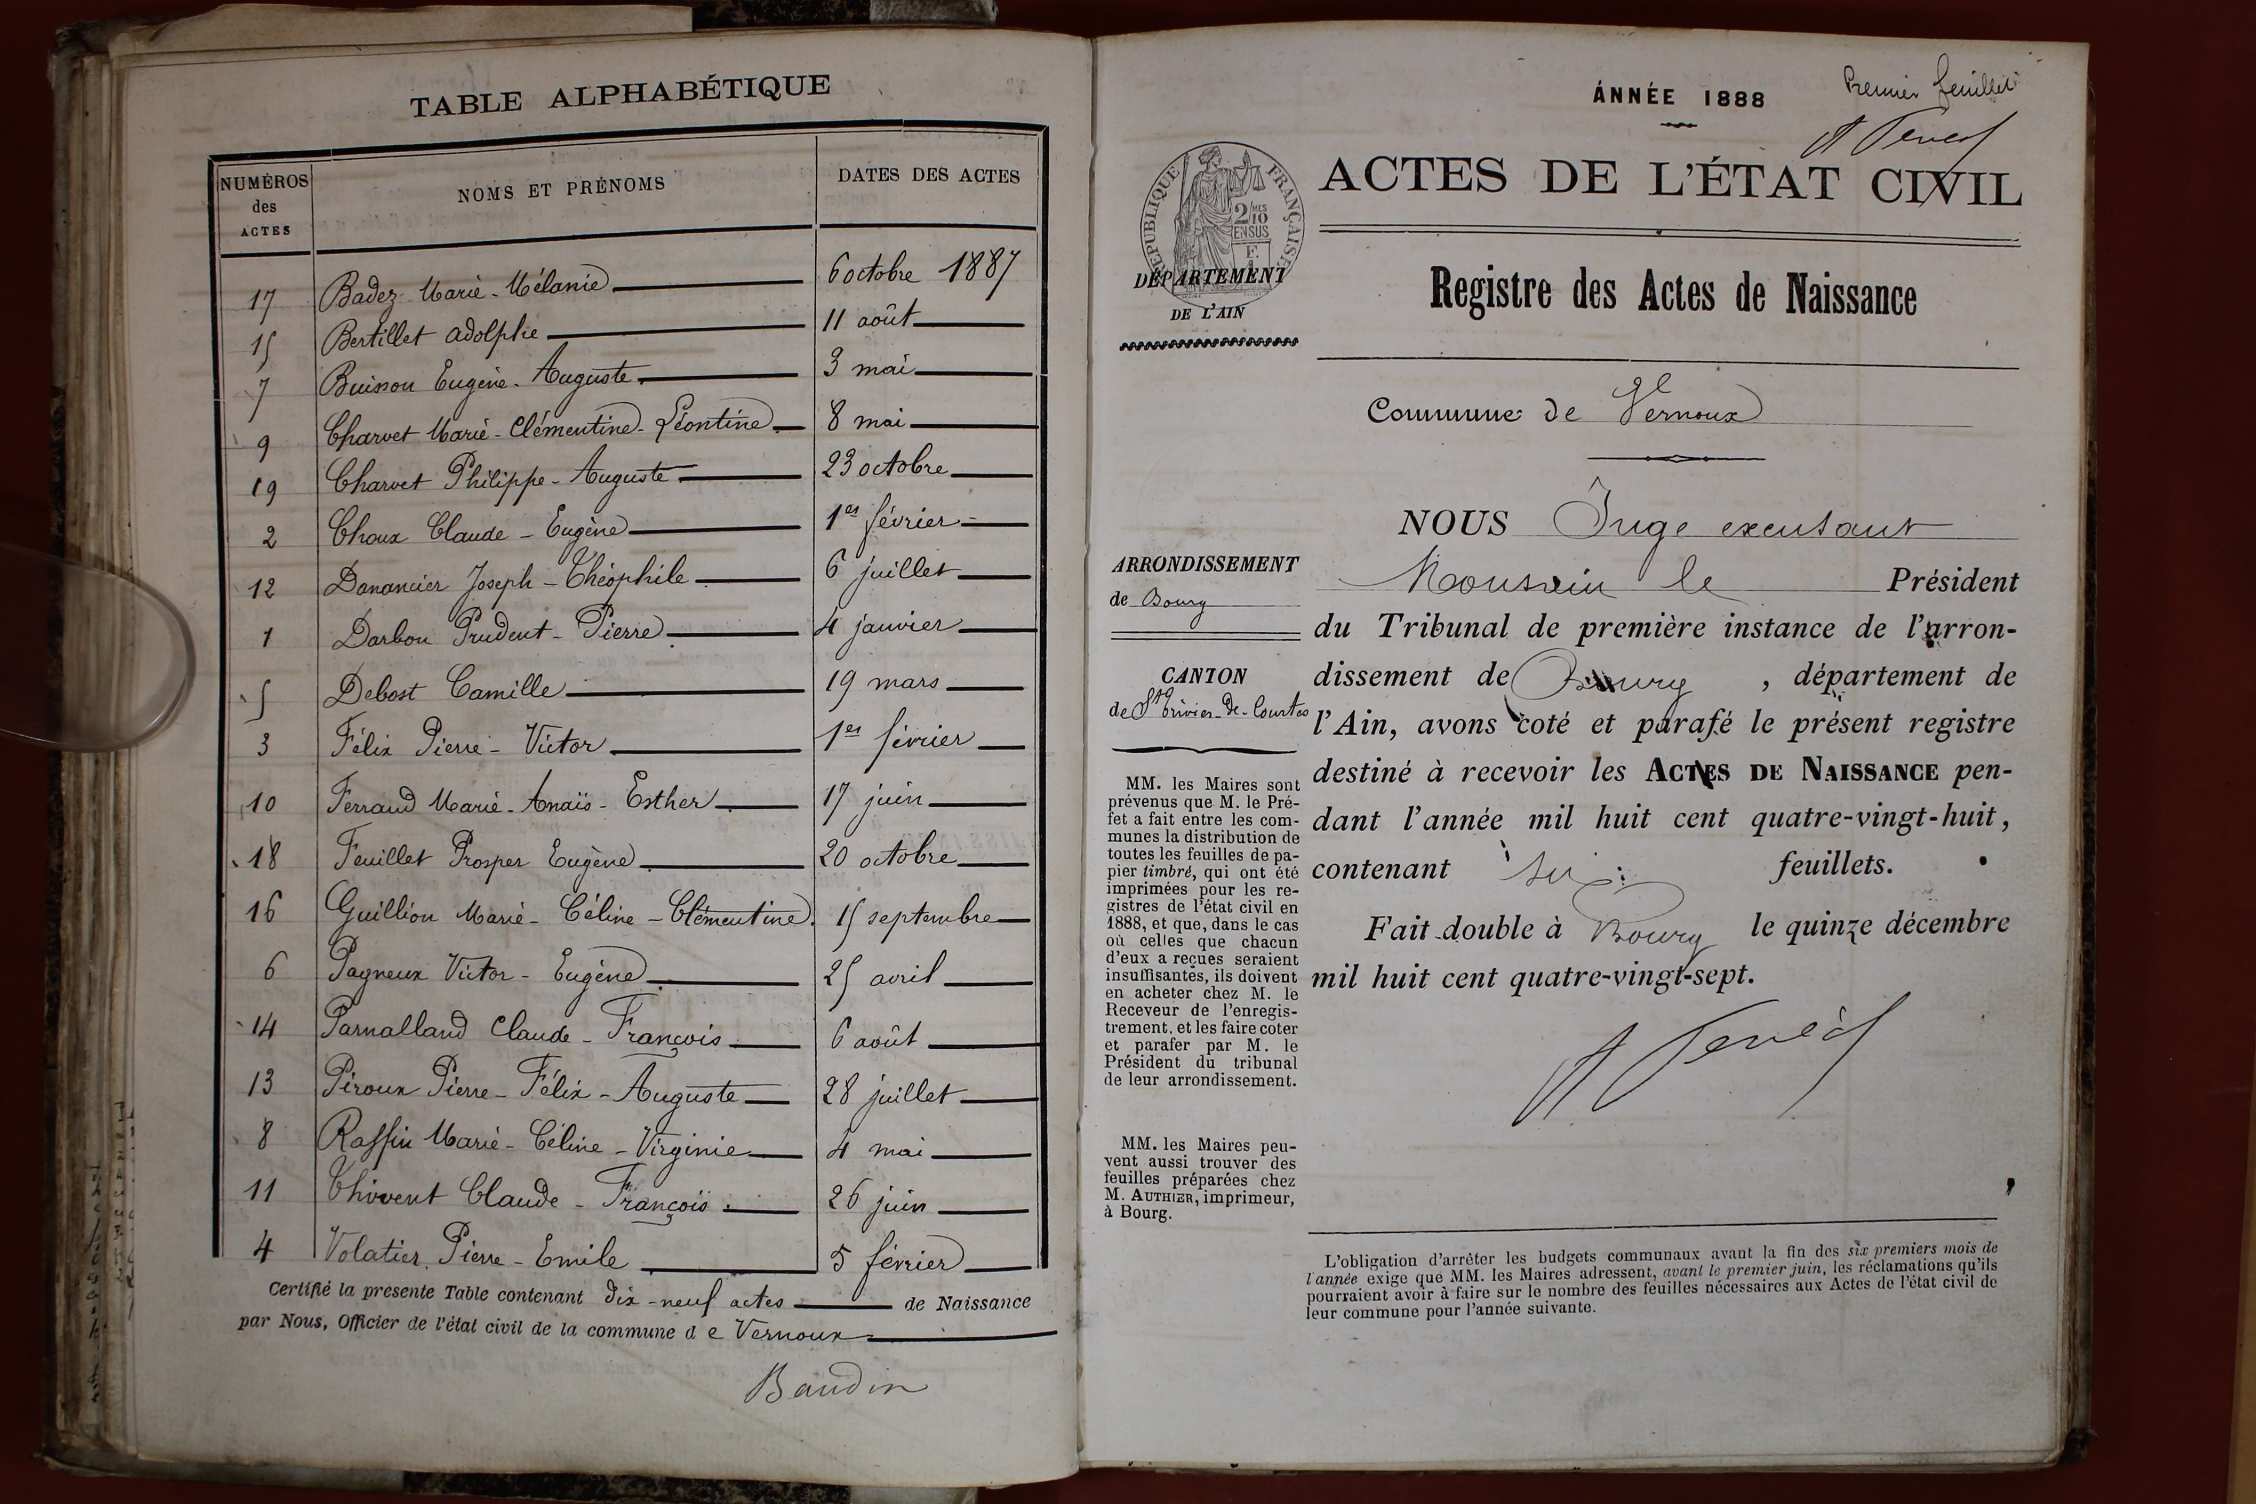 TABLE ALPHABÉTIQUE
NUMÉROS des ACTES NOMS ET PRÉNOMS DATES DES ACTES
17 Badez Marie-Mélanie 6 octobre 1887
15 Bertillet Adolphe 11 août
7 Buisson Eugène-Auguste 3 mai
9 Charvet Marie-Clémentine-Léontine 8 mai
19 Charvet Philippe-Auguste 23 octobre
2 Choux Claude-Eugène 1er février
12 Danancier Joseph-Théophile 6 juillet
1 Darbon Prudent-Pierre 4 janvier
5 Debost Camille 19 mars
3 Félix Pierre-Victor 1er février
10 Ferraud Marie-Anaïs-Esther 17 juin
18 Feuillet Prosper Eugène 20 octobre
16 Guillion Marie-Céline-Clémentine 15 septembre
6 Pagneux Victor-Eugène 25 avril
14 Parnalland Claude-François 6 août
13 Piroux Pierre-Félix-Auguste 28 juillet
8 Raffin Marie-Céline-Virginie 4 mai
11 Thivent Claude-François 26 juin
4 Volatier Pierre-Emile 5 février
Certifié la présente Table contenant dix-neuf actes de Naissance
par Nous, Officier de l'état civil de la commune d e Vernoux
Baudin
ANNÉE 1888
Premier feuillet
ACTES DE L'ÉTAT CIVIL
RÉPUBLIQUE FRANÇAISE
2/10 MES
EN SUS
DÉPARTEMENT
DE L'AIN
Registre des Actes de Naissance
Commune de Vernoux
ARRONDISSEMENT
de Bourg
CANTON
de St Trivier-de-Courtes
MM. les Maires sont
prévenus que M. le Pré-
fet a fait entre les com-
munes la distribution de
toutes les feuilles de pa-
pier timbré, qui ont été
imprimées pour les re-
gistres de l'état civil en
1888, et que, dans le cas
où celles que chacun
d'eux a reçues seraient
insuffisantes, ils doivent
en acheter chez M. le
Receveur de l'enregis-
trement, et les faire coter
et parafer par M. le
Président du tribunal
de leur arrondissement.
MM. les Maires peu-
vent aussi trouver des
feuilles préparées chez
M. AUTHIER, imprimeur,
à Bourg.
NOUS Juge
le Président
du Tribunal de première instance de l'arron-
dissement de Bourg, département de
l'Ain, avons coté et parafé le présent registre
destiné à recevoir les ACTES DE NAISSANCE pen-
dant l'année mil huit cent quatre-vingt-huit,
contenant six feuillets.
Fait double à Bourg le quinze décembre
mil huit cent quatre-vingt-sept.
L'obligation d'arrêter les budgets communaux avant la fin des six premiers mois de
l'année exige que MM. les Maires adressent, avant le premier juin, les réclamations qu'ils
pourraient avoir à faire sur le nombre des feuilles nécessaires aux Actes de l'état civil de
leur commune pour l'année suivante.